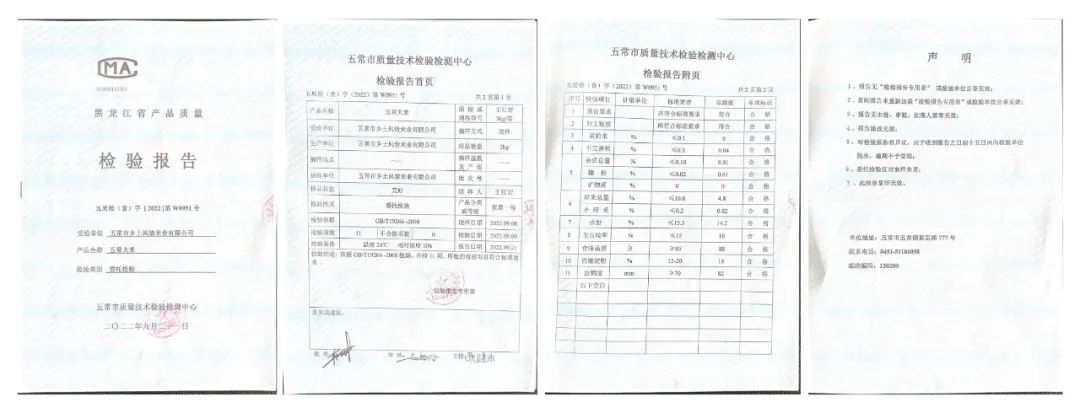 MA
黑龙江省产品质量
检验报告
五质检（食）字 [2022] 第 W0951 号
受检单位 五常市乡土风情米业有限公司
产品全称 五常大米
检验类别 委托检验
五常市质量技术检验检测中心
二〇二二年九月二十一日
五常市质量技术检验检测中心
检验报告首页
五质检（食）字（2022）第 W0951 号
共 2 页第 1 页
产品名称 五常大米 商标或规格型号 5kg/袋
受检单位 五常市乡土风情米业有限公司 抽样方式 送样
生产单位 五常市乡土风情米业有限公司 样品数量 2kg
抽样地点 —— 抽样基数及产品 ——
五常市乡土风情米业有限公司 批次号 ——
样品状态 完好 送样人
检验性质 委托检验 产品分类或等级 优质一等
检验依据 GB/T19266-2008 送样日期 2022.09.08
检验项数 11 不合格项数 0 检验日期 2022.09.09
检验条件 温度 20℃ 相对湿度 报告日期 2022.09.21
检验结论：按照 GB/T19266-2008 检验，共检 11 项，所检的检验项目符合标准要求。
检验报告专用章
意见或建议：
批准： 审核： 主检：
五常市质量技术检验检测中心
检验报告附页
五质检（食）字（2022）第 W0951 号
共 2 页第 2 页
序号 检验项目 计量单位 标准要求 实测值 单项结论
1 感官要求 应符合标准要求 符合 合格
2 加工精度 应符合标准要求 符合 合格
3 黄粒米 % ≤0.1 0 合格
4 不完善粒 % 0.04 合格
5 杂质总量 % ≤0.10 0.01 合格
糠粉 % 0.01 合格
矿物质 % 0 合格
6 碎米总量 % ≤10.0 4.8 合格
小碎米 % ≤0.2 0.02 合格
7 水分 % ≤15.5 14.2 合格
8 垩白粒率 % 10 合格
9 食味品质 分 88 合格
10 直链淀粉 % 15-20 18 合格
11 胶稠度 mm ≥70 82 合格
以下空白
声 明
1、报告无“检验报告专用章”或检验单位公章无效；
2、复制报告未重新加盖“检验报告专用章”或检验单位公章无效；
3、报告无主检、审核、批准人签章无效；
4、报告涂改无效；
5、对检验报告有异议，应于收到报告之日起十五日内向检验单位
提出，逾期不予受理；
6、委托检验仅对来样负责；
7、此报告复印无效。
单位地址：五常市五常镇亚臣路 777 号
联系电话：0451-51181058
邮政编码：150209